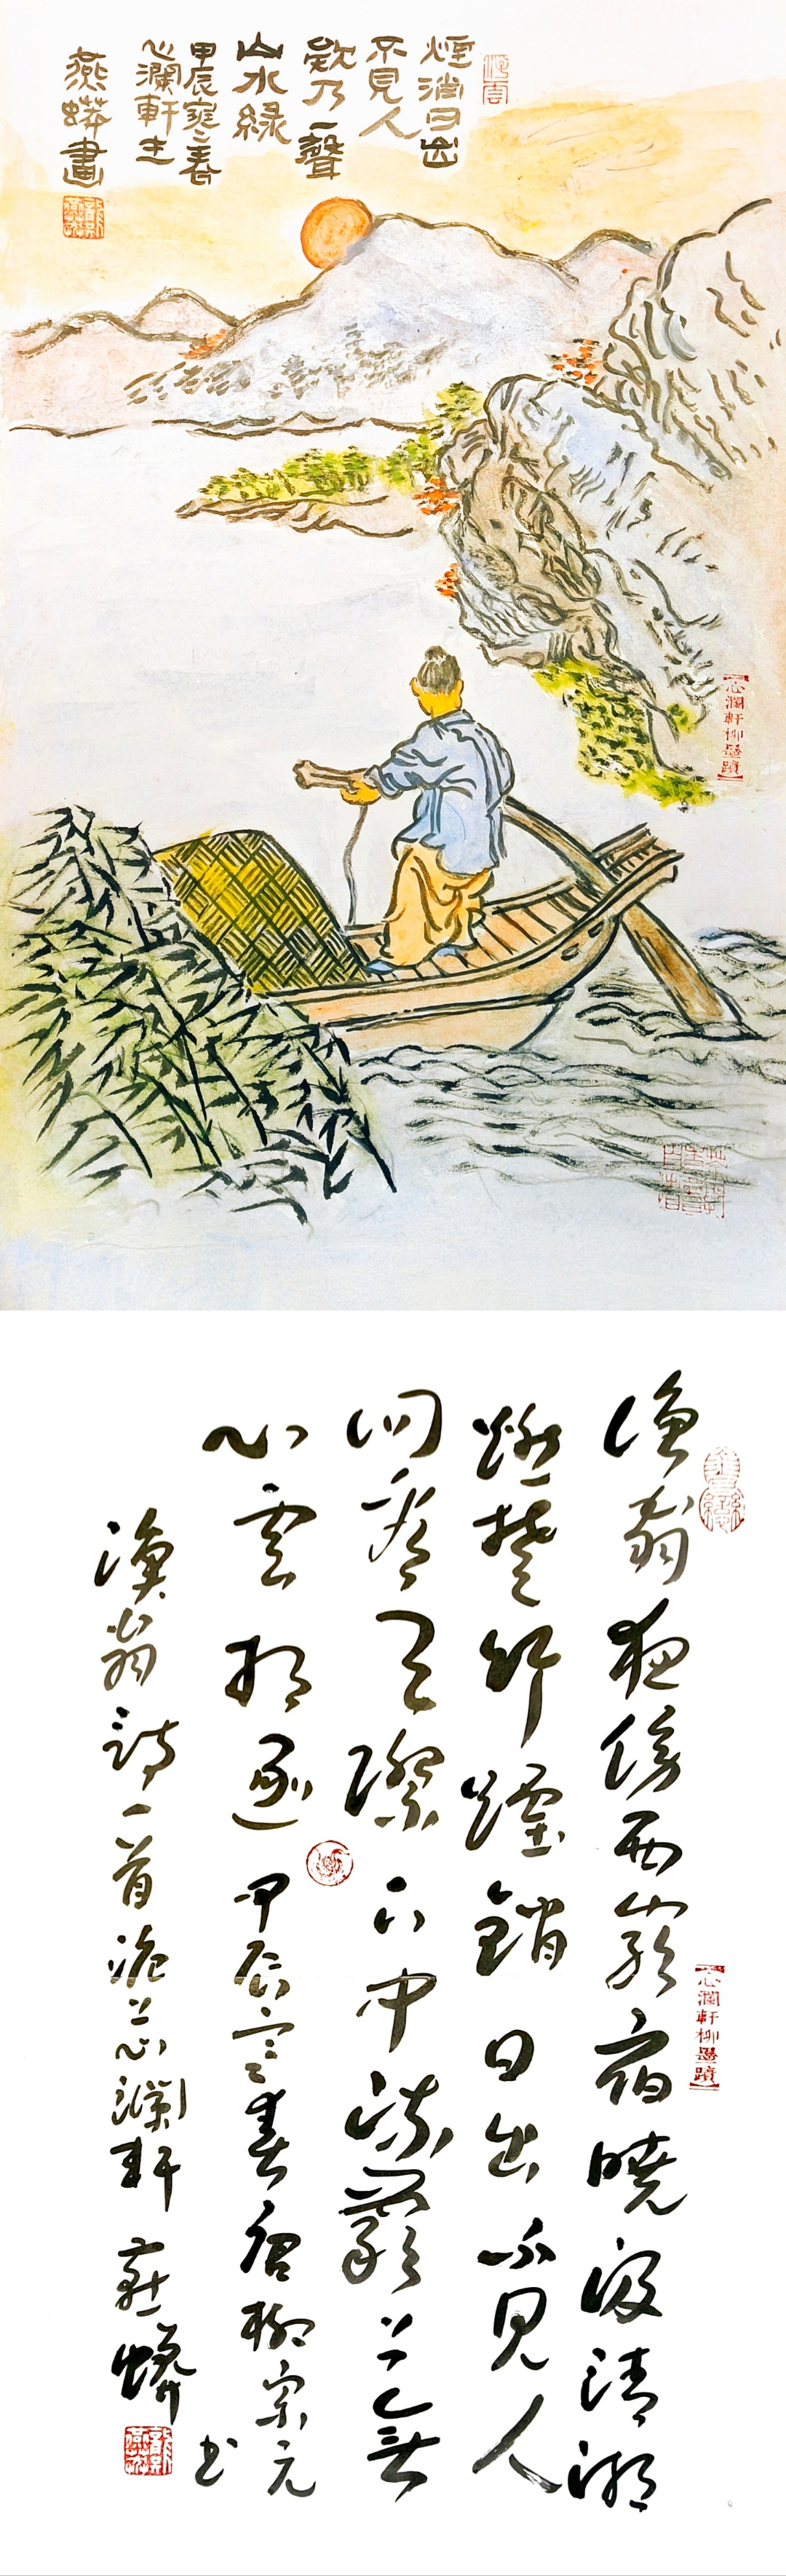 煙消日出
不見人
欸乃一聲
山水緑
甲辰寒春
心瀾軒主
燕蟒畫
【心瀾軒柳墨蹟】
漁翁夜傍西巖宿曉汲清湘
燃楚竹煙銷日出不見人
回看天際下中流巖上無
心雲相逐甲辰寒春唐柳宗元
漁翁詩一首滬上心瀾軒燕蟒
书
【心瀾軒柳墨蹟】